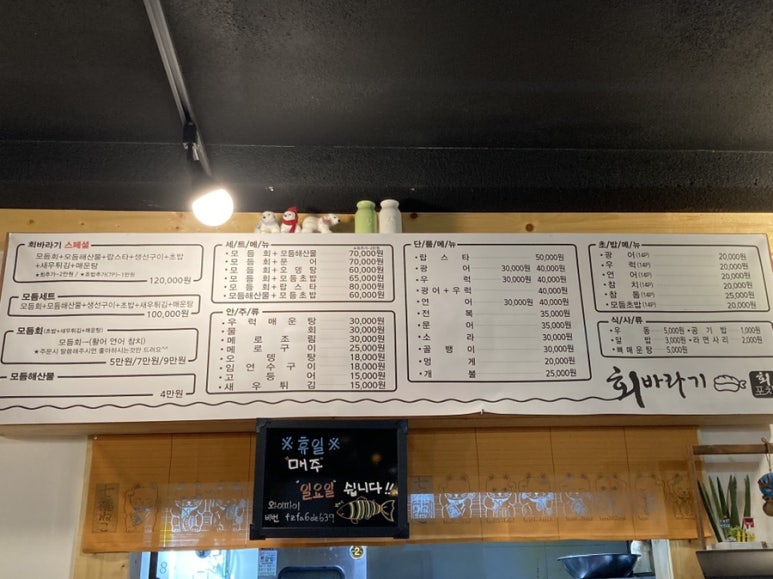 회바라기 스페셜
모듬회+모듬해산물+랍스타+생선구이+초밥
+새우튀김+매운탕
120,000원
모듬세트
모듬회+모듬해산물+생선구이+초밥+새우튀김+매운탕
100,000원
모듬회(초밥+새우튀김+매운탕)
모듬회→(광어 연어 참치)
★주문시 말씀해주시면 좋아하시는것만 드려요^^
5만원/7만원/9만원
모듬해산물
4만원
세/트/메/뉴
•모듬회+모듬해산물 70,000원
•모듬회+문어 70,000원
•모듬회+오뎅탕 60,000원
•모듬회+모듬초밥 65,000원
•모듬회+랍스타 80,000원
•모듬해산물+모듬초밥 60,000원
안/주/류
•우럭매운탕 30,000원
•물회 30,000원
•메로조림 30,000원
•메로구이 25,000원
•오뎅탕 18,000원
•임연수구이 18,000원
•고등어 15,000원
•새우튀김 15,000원
단/품/메/뉴
•랍스타 50,000원
•광어 30,000원 40,000원
•우럭 30,000원 40,000원
•광어+우럭 40,000원
•연어 30,000원 40,000원
•전복 35,000원
•문어 35,000원
•소라 30,000원
•골뱅이 30,000원
•멍게 20,000원
•개불 25,000원
초/밥/메/뉴
•광어(14P) 20,000원
•우럭(14P) 20,000원
•연어(14P) 20,000원
•참치(14P) 20,000원
•참돔(14P) 25,000원
•모듬초밥(14P) 20,000원
식/사/류
•우동 5,000원 •공기밥 1,000원
•알밥 3,000원 •라면사리 2,000원
•뼈매운탕 5,000원
회바라기
※휴일※
"매주"
"일요일" 쉽니다!!
와이파이
비번